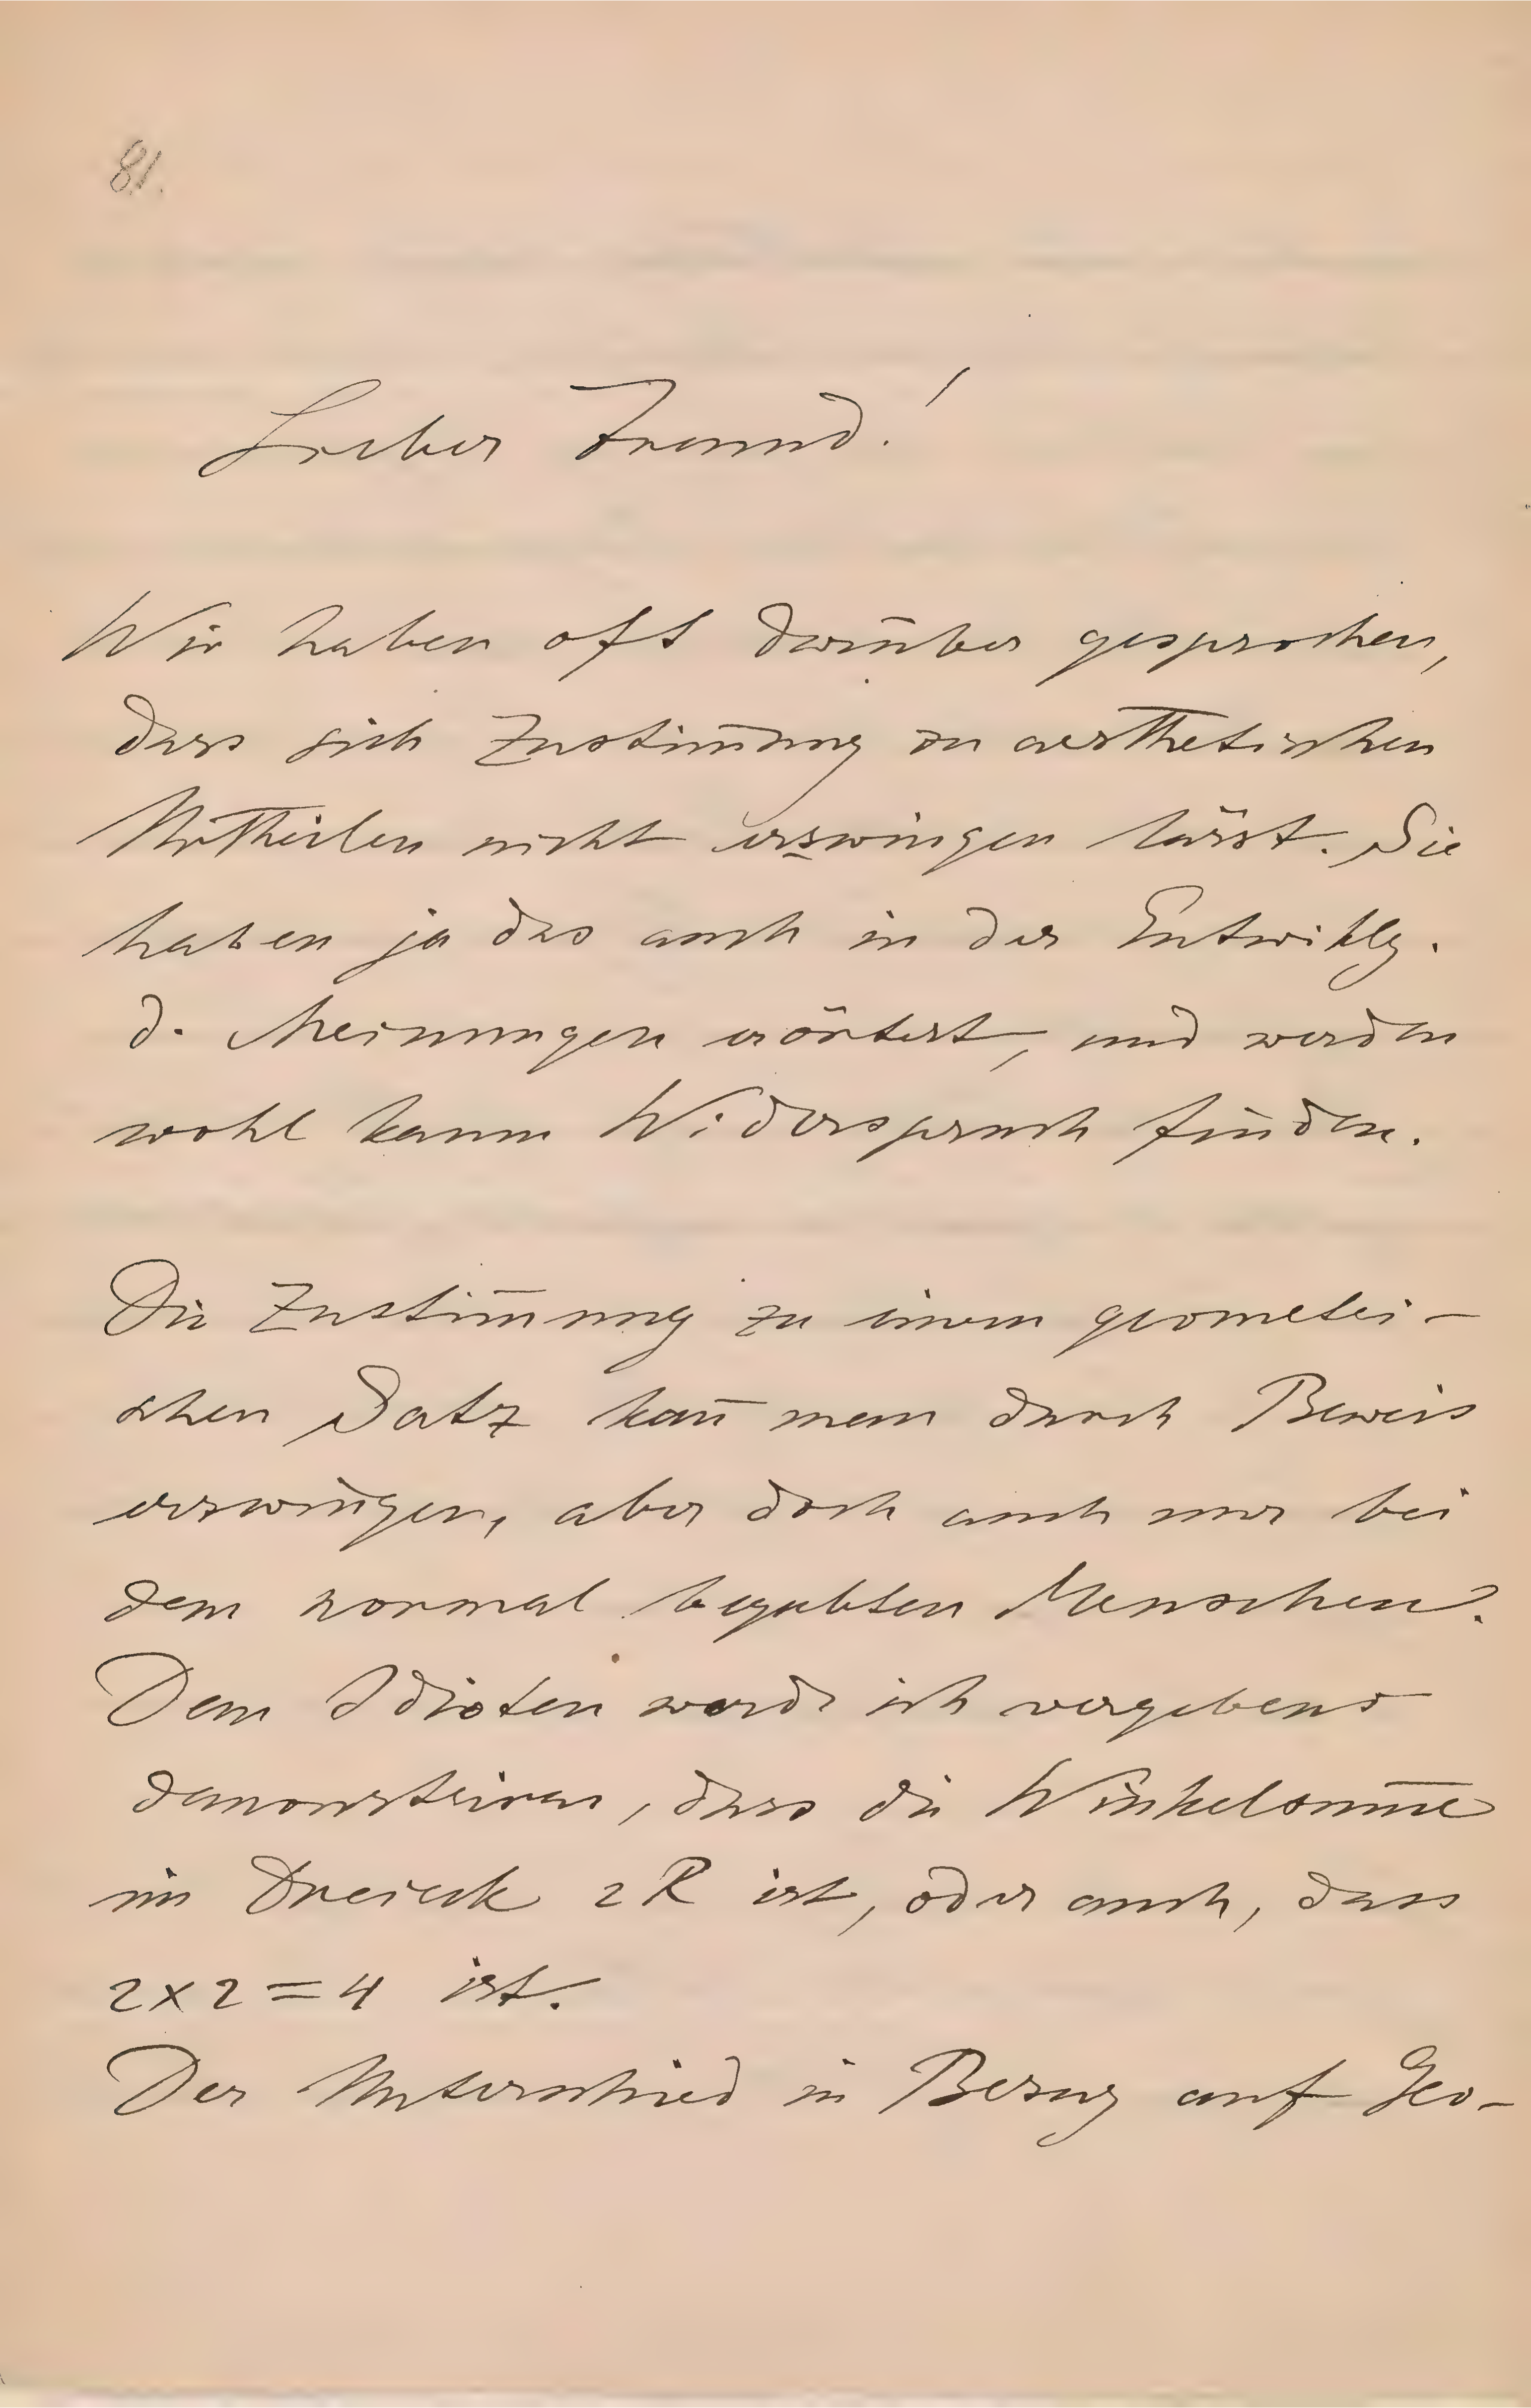 81.
Lieber Freund!
Wir haben oft darüber gesprochen,
dass sich Zustim̄ung zu aesthetischen
Urtheilen nicht erzwingen lässt. Sie
haben ja das auch in der Entwiklg.
d. Meinungen erörtert, und werden
wohl kaum Widerspruch finden.
Die Zustim̄ung zu einem geometri-
schen Satz kan̄ man durch Beweis
erzwingen, aber doch auch nur bei
dem normal begabten Menschen.
Dem Idioten werde ich vergebens
demonstriren, dass die Winkelsum̄e
im Dreieck 2R ist, oder auch, dass
2×2=4 ist.
Der Unterschied in Bezug auf Geo-